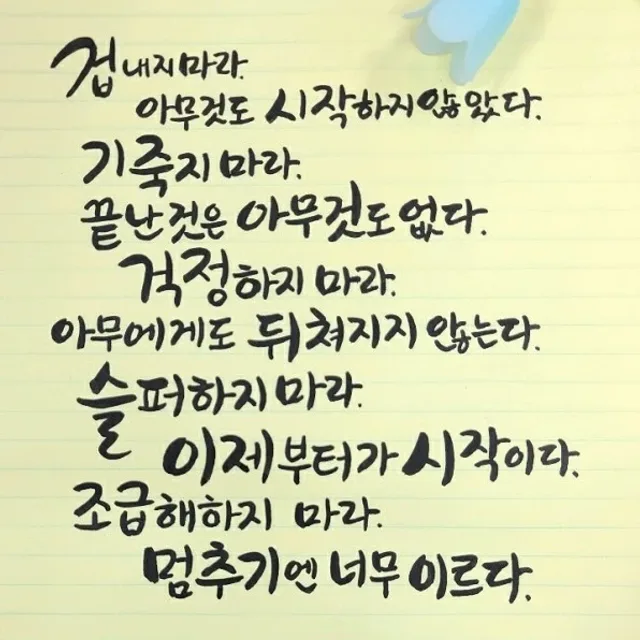 겁내지마라.
아무것도 시작하지않았다.
기죽지마라.
끝난것은 아무것도없다.
걱정하지 마라.
아무에게도 뒤쳐지지 않는다.
슬퍼하지마라.
이제부터가 시작이다.
조급해하지 마라.
멈추기엔 너무 이르다.